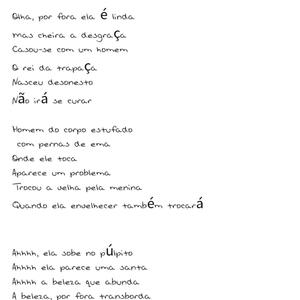 Olha, por fora ela é linda
mas cheira a desgraça
Casou-se com um homem
O rei da trapaça
Nasceu desonesto
Não irá se curar

Homem do corpo estufado
com pernas de ema
Onde ele toca
Aparece um problema
Trocou a velha pela menina
Quando ela envelhecer também trocará

Ahhhh, ela sobe no púlpito
Ahhhh ela parece uma santa
Ahhhh a beleza que abunda
A beleza, por fora transborda